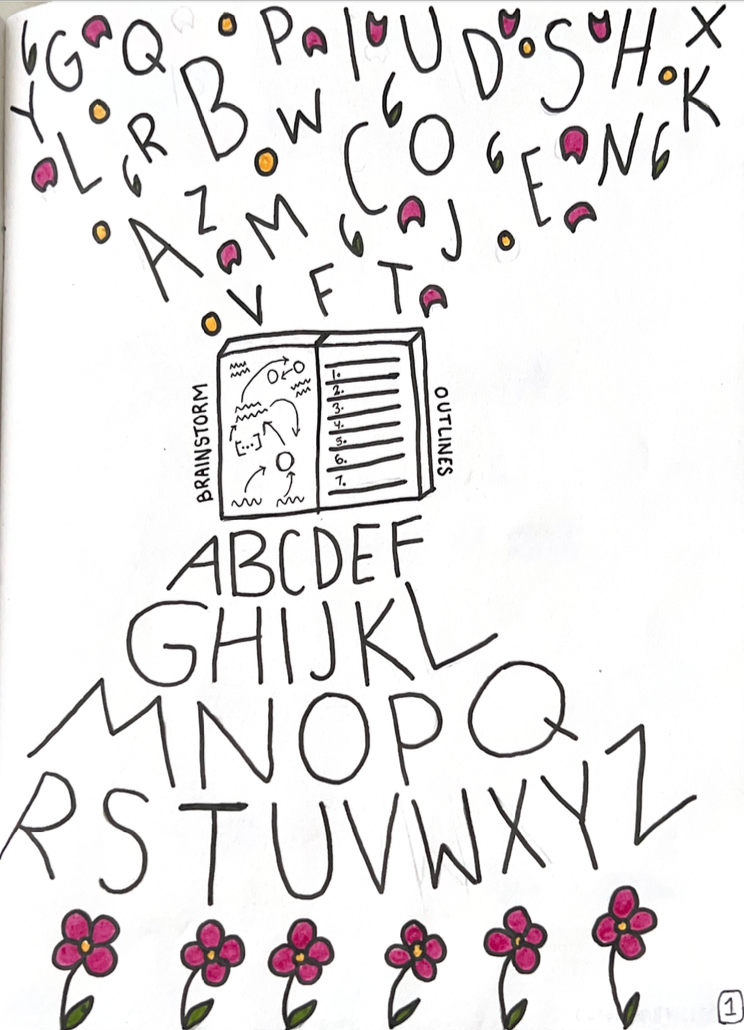 G Q P I U D S H X
Y L R B W C O E N K
A Z M J
V F T
BRAINSTORM
[...]
1.
2.
3.
4.
5.
6.
7.
OUTLINES
ABCDEF
GHIJKL
MNOPQ
RSTUVWXYZ
1